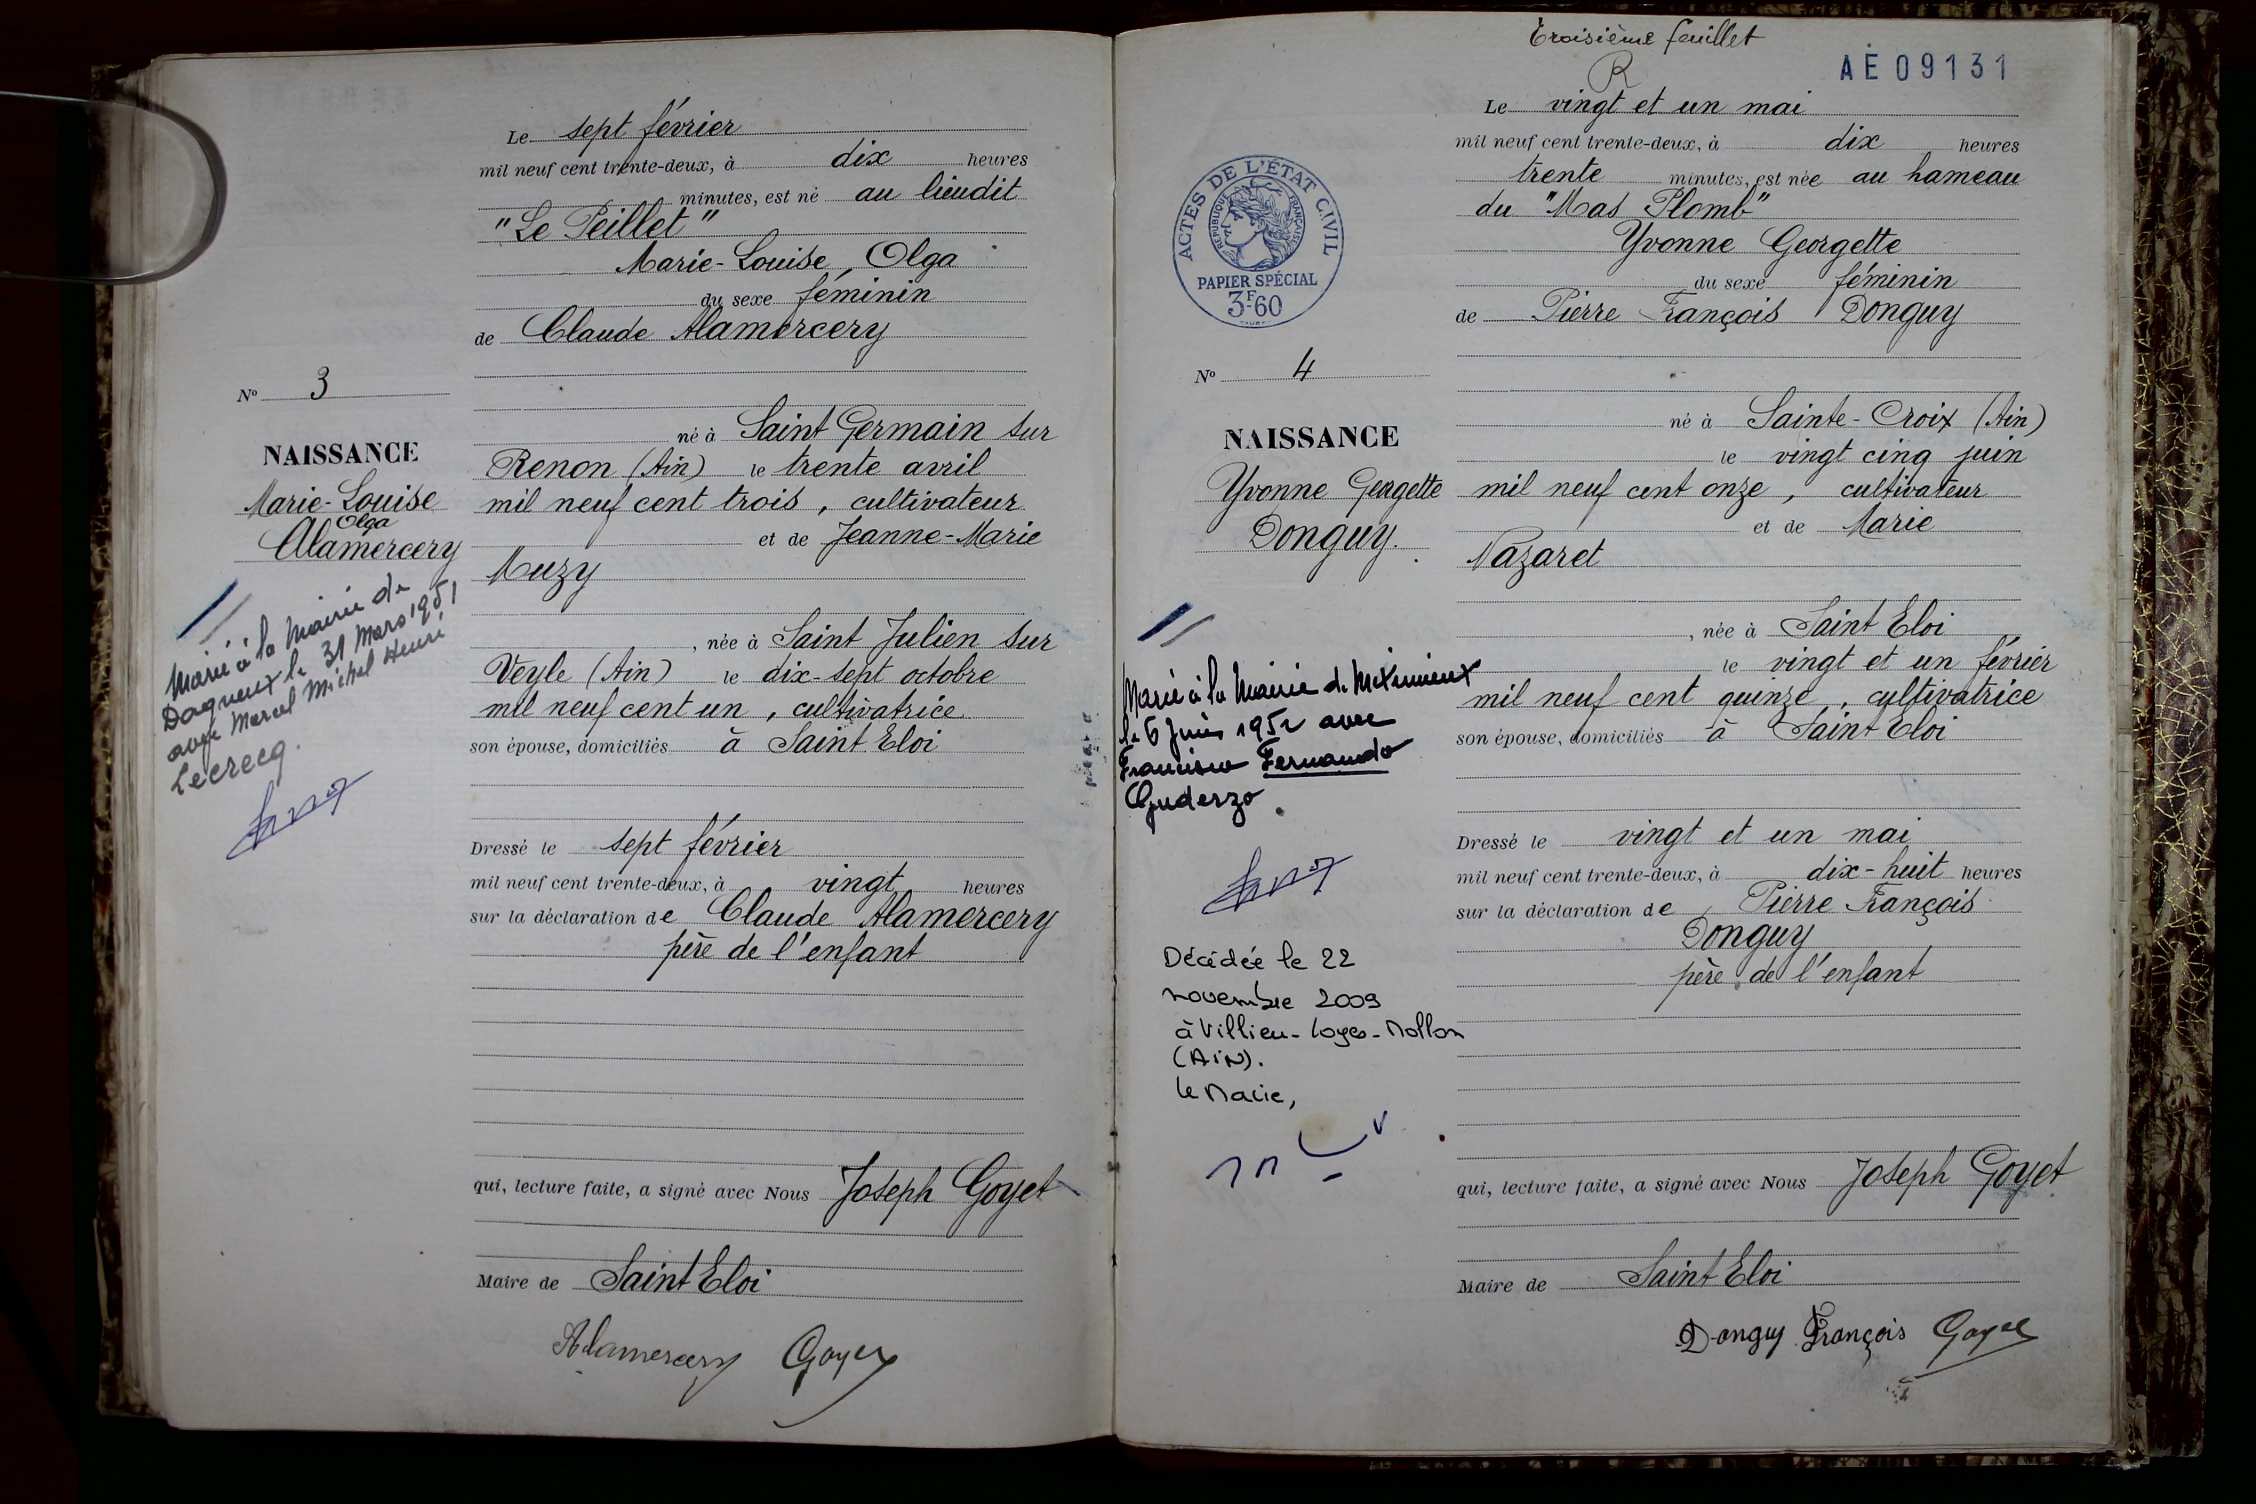 Le sept février
mil neuf cent trente-deux, à dix heures
minutes, est né au lieudit
"Le Peillet"
Marie-Louise, Olga
du sexe féminin
de Claude Alamercery
né à Saint Germain sur
Renon (Ain) le trente avril
mil neuf cent trois, cultivateur
et de Jeanne-Marie
Muzy
, née à Saint Julien sur
Veyle (Ain) le dix-sept octobre
mil neuf cent un, cultivatrice
son épouse, domiciliés à Saint Eloi
Dressé le sept février
mil neuf cent trente-deux, à vingt heures
sur la déclaration de Claude Alamercery
père de l'enfant
qui, lecture faite, a signé avec Nous Joseph Goyet
Maire de Saint Eloi
Alamercery Goyet
No 3
NAISSANCE
Marie-Louise
Olga
Alamercery
Marié à la Mairie de
Dagneux le 31 Mars 1951
avec Marcel Michel Henri
Lecrecq.
Troisième feuillet
R
AE 09131
Le vingt et un mai
mil neuf cent trente-deux, à dix heures
trente minutes, est née au hameau
du "Mas Plomb"
Yvonne Georgette
du sexe féminin
de Pierre François Donguy
né à Sainte-Croix (Ain)
le vingt cinq juin
mil neuf cent onze, cultivateur
et de Marie
Nazaret
, née à Saint Eloi
le vingt et un février
mil neuf cent quinze, cultivatrice
son épouse, domiciliés à Saint Eloi
Dressé le vingt et un mai
mil neuf cent trente-deux, à dix-huit heures
sur la déclaration de Pierre François
Donguy
père de l'enfant
qui, lecture faite, a signé avec Nous Joseph Goyet
Maire de Saint Eloi
Donguy François Goyet
ACTES DE L'ÉTAT CIVIL
RÉPUBLIQUE FRANÇAISE
PAPIER SPÉCIAL
3F60
No 4
NAISSANCE
Yvonne Georgette
Donguy.
Marié à la Mairie de Meximieux
le 6 Juin 1952 avec
Francisco Fernando
Guderzo.
Décédée le 22
novembre 2009
à Villieu-Loyes-Mollon
(AiN).
le Maire,